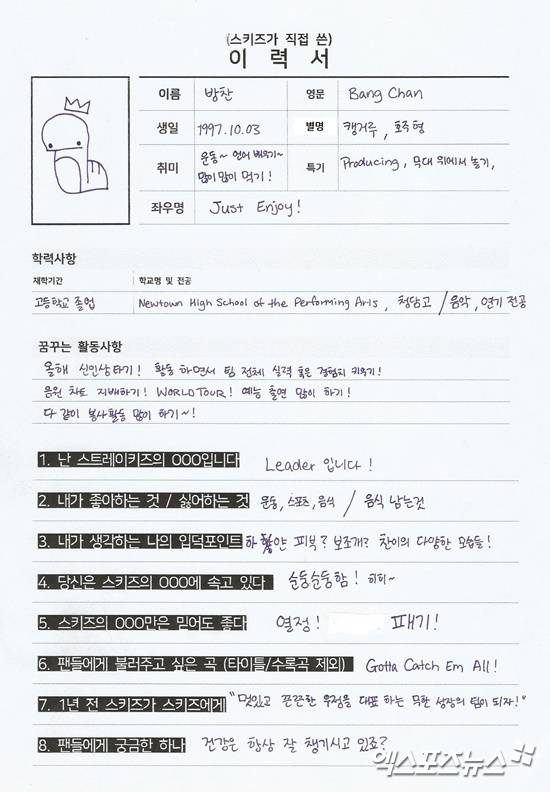 (스키즈가 직접 쓴)
이 력 서
이름 방찬 영문 Bang Chan
생일 1997.10.03 별명 캥거루, 호주형
취미 운동~ 언어 배우기~ 특기 Producing, 무대 위에서 놀기,
많이 많이 먹기!
좌우명 Just Enjoy!
학력사항
재학기간 학교명 및 전공
고등학교 졸업 Newtown High School of the Performing Arts, 청담고 / 음악, 연기 전공
꿈꾸는 활동사항
올해 신인상 타기! 활동 하면서 팀 전체 실력 혹은 경험치 키우기!
음원 차트 지배하기! WORLD TOUR! 예능 출연 많이 하기!
다 같이 봉사활동 많이 하기~!
1. 난 스트레이키즈의 OOO입니다 Leader 입니다!
2. 내가 좋아하는 것 / 싫어하는 것 운동, 스포츠, 음식 / 음식 남는것
3. 내가 생각하는 나의 입덕포인트 하얀 피부? 보조개? 찬이의 다양한 모습들!
4. 당신은 스키즈의 OOO에 속고 있다 순둥순둥함! 히히~
5. 스키즈의 OOO만은 믿어도 좋다 열정! 패기!
6. 팬들에게 불러주고 싶은 곡 (타이틀/수록곡 제외) Gotta Catch Em All!
7. 1년 전 스키즈가 스키즈에게 "멋있고 끈끈한 우정을 대표 하는 무한 성장의 팀이 되자!"
8. 팬들에게 궁금한 하나 건강은 항상 잘 챙기시고 있죠?
엑스포츠뉴스